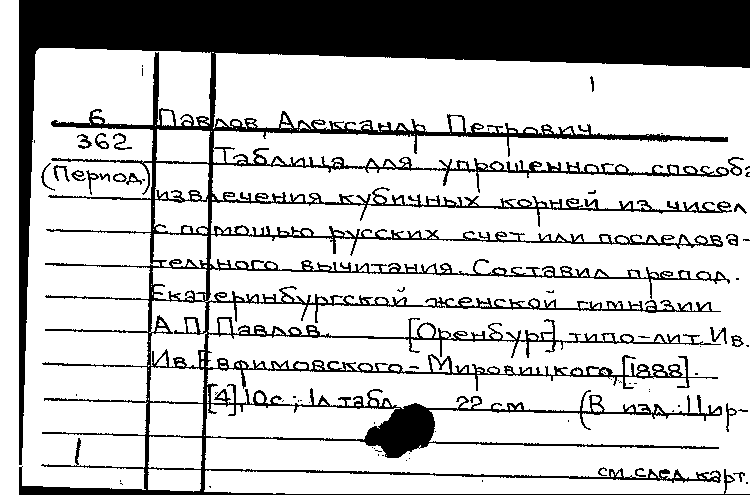 1
6 Павлов, Александр Петрович
362
Таблица для упрощенного способа
(Период.)
извлечения кубичных корней из чисел
с помощью русских счет или последова-
тельного вычитания. Составил препод.
Екатеринбургской женской гимназии
А.П. Павлов. [Оренбург], типо-лит. Ив.
Ив. Евфимовского-Мировицкого, [1888].
[4], 10 с.; 1 л табл. 22 см (В изд.: Цир-
1
см. след. карт.